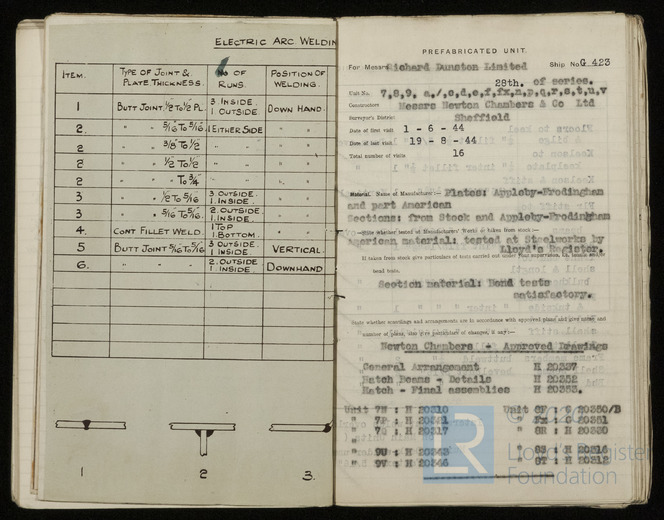 ELECTRIC ARC WELDIN
ITEM. TYPE OF JOINT & PLATE THICKNESS. No OF RUNS. POSITION OF WELDING.
1 BUTT JOINT. 1/2 TO 1/2 PL. 3 INSIDE. 1 OUTSIDE. DOWN HAND.
2. " " 5/16 TO 5/16 1 EITHER SIDE " "
2 " " 3/8 TO 1/2 " " " "
2 " " 1/2 TO 1/2 " " " "
2 " " TO 3/4 " " " "
3 " " 1/2 TO 5/16 3 OUTSIDE. 1 INSIDE. " "
3 " " 5/16 TO 5/16. 2 OUTSIDE. 1 INSIDE. " "
4. CONT FILLET WELD. 1 TOP 1 BOTTOM. " "
5 BUTT JOINT 5/16 TO 5/16 3 OUTSIDE 1 INSIDE VERTICAL.
6. 2. OUTSIDE 1 INSIDE DOWNHAND
1 2 3.
PREFABRICATED UNIT.
For Messrs Richard Dunston Limited Ship No G 423
28th. of series.
Unit No. 7,8,9.
Constructors Messrs Newton Chambers & Co Ltd
Surveyor's District Sheffield
Date of first visit 1 - 6 - 44
Date of last visit 19 - 8 - 44
Total number of visits 16
Material. Name of Manufacturer:- Plates: Appleby-Frodingham
and part American
Sections: from Stock and Appleby-Frodingham
State whether tested at Manufacturers' Works or taken from stock:-
American material: tested at Steelworks by
Lloyd's Register.
If taken from stock give particulars of tests carried out under your supervision, i.e. tensile and/or
bend tests.
Section material: Bend tests
satisfactory.
State whether scantlings and arrangements are in accordance with approved plans and give name and
number of plans, also give particulars of changes, if any:-
Newton Chambers - Approved Drawings
General Arrangement H 20337
Hatch Beams - Details H 20352
Hatch - Final assemblies H 20353.
Unit 7N : H 20310 Unit 8F : G 20350/B
LR
Lloyd's Register
Foundation